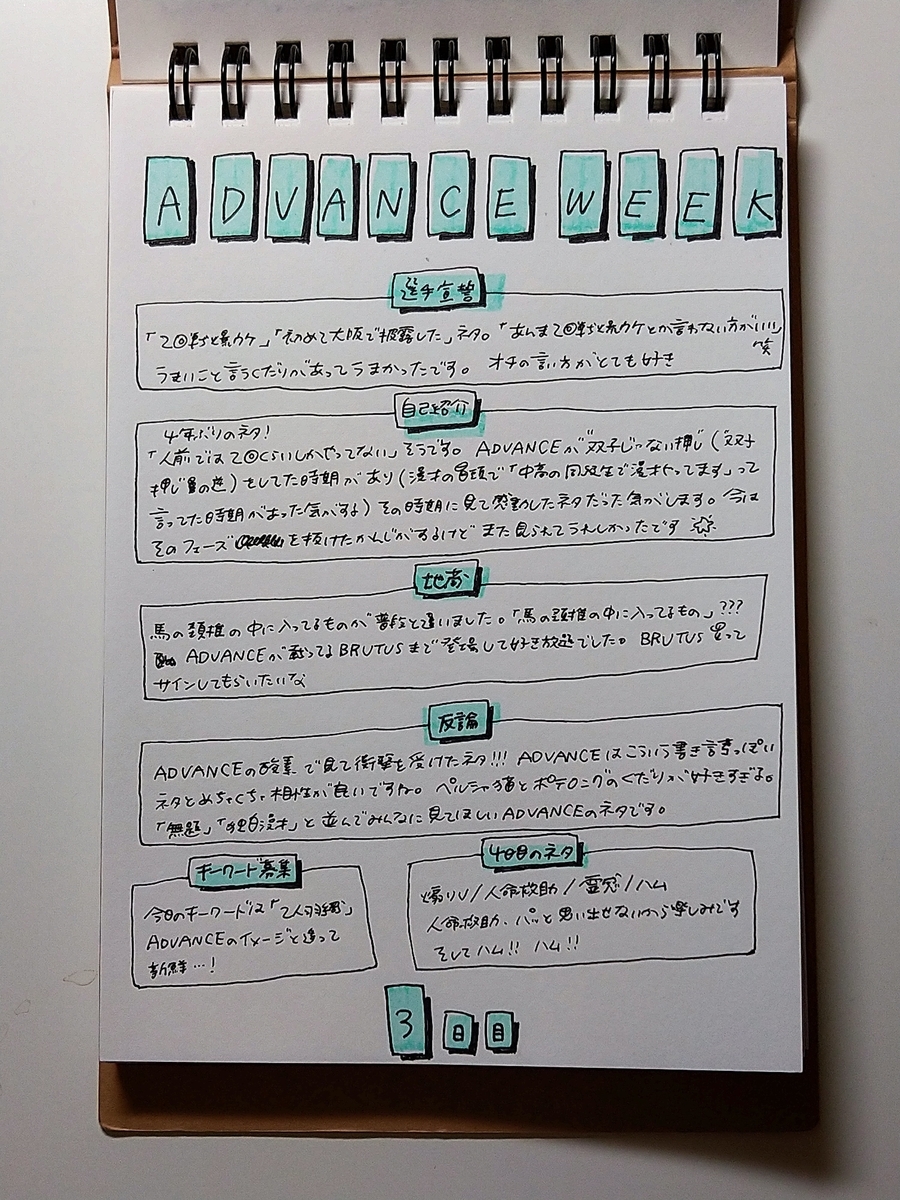 ADVANCE WEEK
選手宣誓
「2回戦ぢと暴力ケ」「初めて大阪で披露した」ネタ。「あんま2回戦ぢと暴力ケとか言わない方がいい」
笑
うまいこと言うくだりがあってうまかったです。 オチの言い方がとても好き
自己紹介
4年ぶりのネタ!
「人前では2回くらいしかやってない」そうです。ADVANCEが"双子じゃない押し(双子
押し の逆)をしてた時期があり(漫才の冒頭で「中高の同級生で漫才やってます」って
言ってた時期があった気がするよ)その時期に見て感動したネタだった気がします。今は
そのフェーズ を抜けたかんじがするけど また見られてうれしかったです
地声
馬の頚椎の中に入ってるものが普段と違いました。「馬の頚椎の中に入ってるもの」???
ADVANCEが載ってるBRUTUSまで登場して好き放題でした。BRUTUS 買って
サインしてもらいたいな
反論
ADVANCEの酸素 で見て衝撃を受けたネタ!!! ADVANCEはこういう書き言葉っぽい
ネタとめちゃくちゃ相性が良いですね。ペルシャ猫とポテロングのくだりが好きすぎる。
「無題」「独白漫才」と並んでみんなに見てほしいADVANCEのネタです。
キーワード募集
今日のキーワードは「2人羽織」
ADVANCEのイメージと違って
新鮮…!
4日目のネタ
煽りV/人命救助/霊感/ハム
人命救助、パッと思い出せないから楽しみです
そしてハム!! ハム!!
3日目